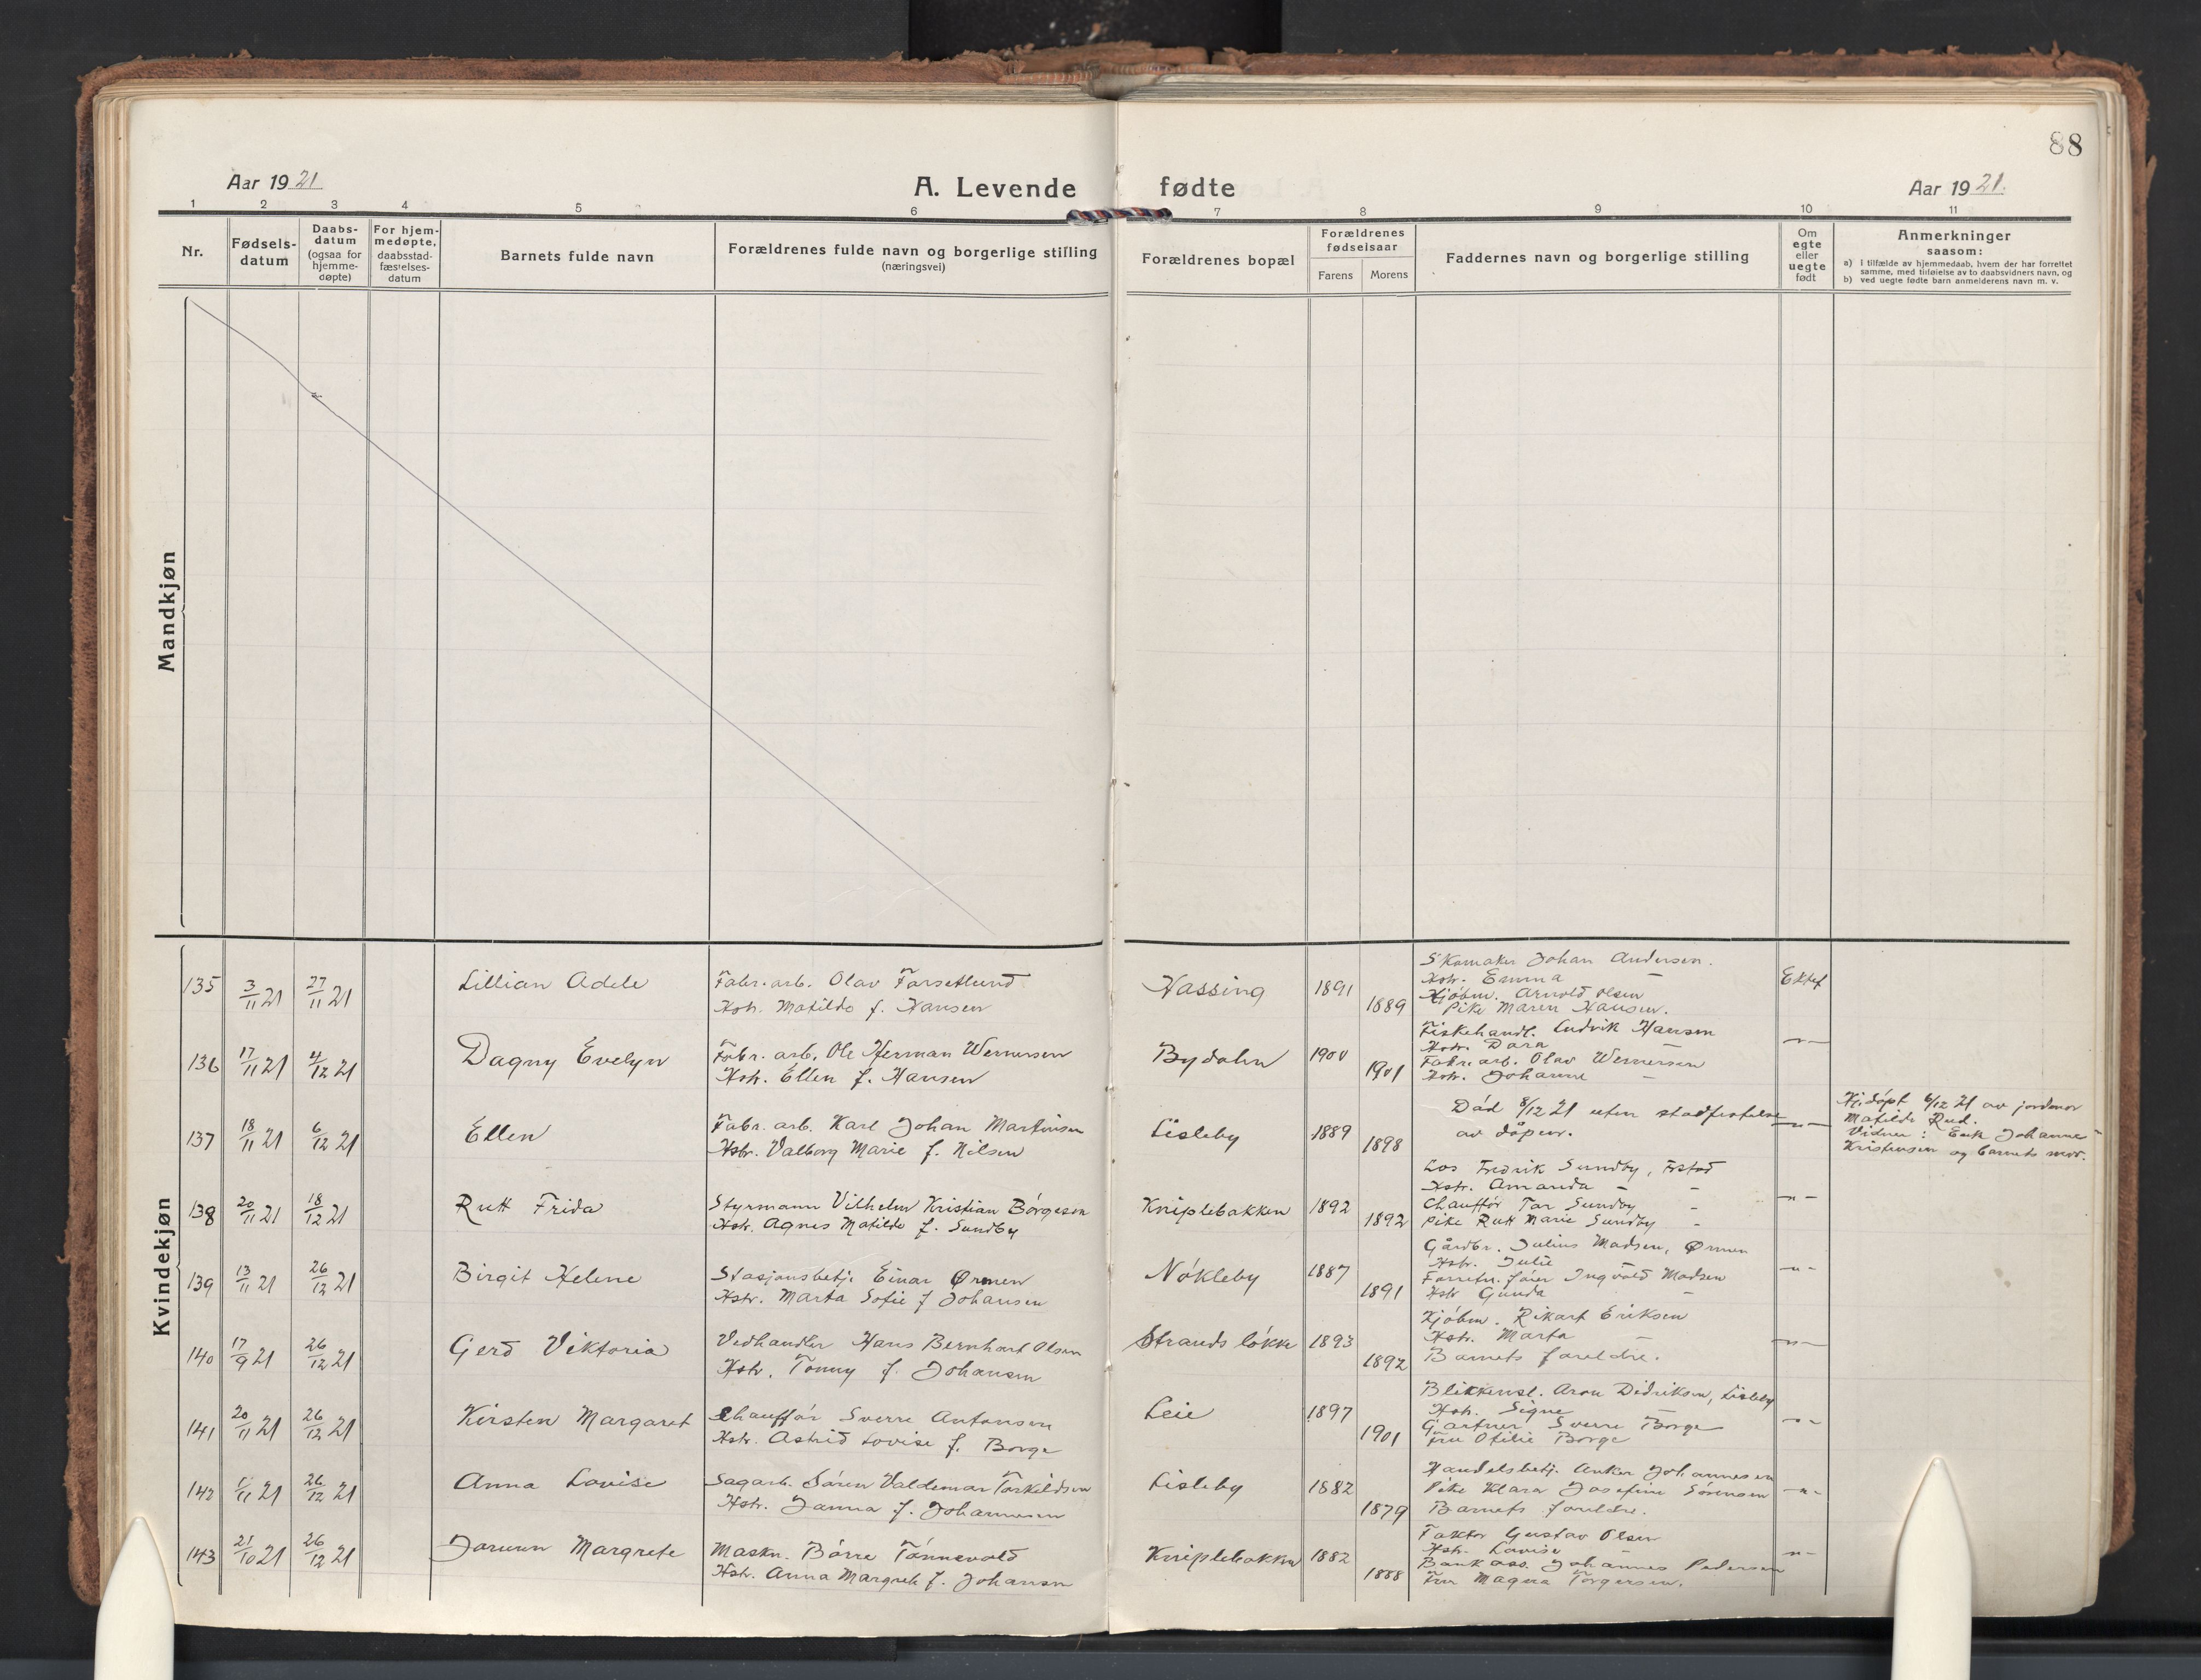 88
Aar 1921
A. Levende fødte
Aar 1921.
1 2 3 4 5 6 7 8 9 10 11
Nr.
Fødsels-
datum
Daabs-
datum
(ogsaa for
hjemme-
døpte)
For hjem-
medøpte,
daabsstad-
fæstelses-
datum
Barnets fulde navn
Forældrenes fulde navn og borgerlige stilling
(næringsvei)
Forældrenes bopæl
Forældrenes
fødselsaar
Farens Morens
Faddernes navn og borgerlige stilling
Om
egte
eller
uegte
født
Anmerkninger
saasom:
a) i tilfælde av hjemmedaab, hvem der har forrettet
samme, med tilføielse av to daabsvidners navn, og
b) ved uegte fødte barn anmelderens navn m. v.
Mandkjøn
Kvindekjøn
135 3/11 21 27/11 21 Lillian Adele
Fabr. arb. Olav Torsetlund
Hstr. Matilde f. Hansen
Hassing 1891 1889
Skomaker Johan Andersen.
Hstr. Emma —
Kjøbm. Arnold Olsen
Pike Maren Hansen.
Ektef
136 17/11 21 4/12 21 Dagny Evelyn
Fabr. arb. Ole Herman Wernersen
Hstr. Ellen f. Hansen
Bydalen 1900 1901
Fiskehandl. Ludvik Hansen
Hstr. Dora —
Fabr. arb. Olav Wernersen
Hstr. Johanne —
—"—
137 18/11 21 6/12 21 Ellen
Fabr. arb. Karl Johan Martinsen
Hstr. Valborg Marie f. Nilsen
Lisleby 1889 1898
Død 8/12 21 uten stadfestelse
av dåpen.
—"—
Hj.døpt 6/12 21 av jordmor
Matilde Rud.
Vidner: Enk Johanne
Kristensen og barnets mor.
138 20/11 21 18/12 21 Rutt Frida
Styrmann Vilhelm Kristian Børgesen
Hstr. Agnes Matilde f. Sundby
Kniplebakken 1892 1892
Los Fredrik Sundby, Fr.stad
Hstr. Amanda — -
Chauffør Tor Sundby -
Pike Rutt Marie Sundby -
—"—
139 13/11 21 26/12 21 Birgit Helene
Stasjonsbetj. Einar Ørmen
Hstr. Marta Sofie f Johansen
Nøkleby 1887 1891
Gårdbr. Julius Madsen, Ørmen
Hstr. Julie —
Forretn.fører Ingvald Madsen
Hstr Gunda -
—"—
140 17/9 21 26/12 21 Gerd Viktoria
Vedhandler Hans Bernhart Olsen
Hstr. Tonny f. Johansen
Strandsløkke 1893 1892
Kjøbm. Rikart Eriksen
Hstr. Marta —
Barnets foreldre.
—"—
141 20/11 21 26/12 21 Kirsten Margaret
Chauffør Sverre Antonsen
Hstr. Astrid Lovise f. Borge
Leie 1897 1901
Blikkensl. Aron Didriksen, Lisleby
Hstr. Signe —
Gartner Sverre Borge
Fru Otilie Borge
—"—
142 1/11 21 26/12 21 Anna Lovise
Sagarb. Søren Valdemar Torkildsen
Hstr. Janna f. Johannesen
Lisleby 1882 1879
Handelsbetj. Anker Johannesen
Pike Klara Josefine Sørensen
Barnets foreldre.
—"—
143 21/10 21 26/12 21 Jorunn Margrete
Maskn. Børre Tønnevold
Hstr. Anna Margrete f. Johansen
Kniplebakken 1882 1888
Faktor Gustav Olsen
Hstr. Lovise —
Bankass. Johannes Pedersen
Fru Magna Torgersen.
—"—